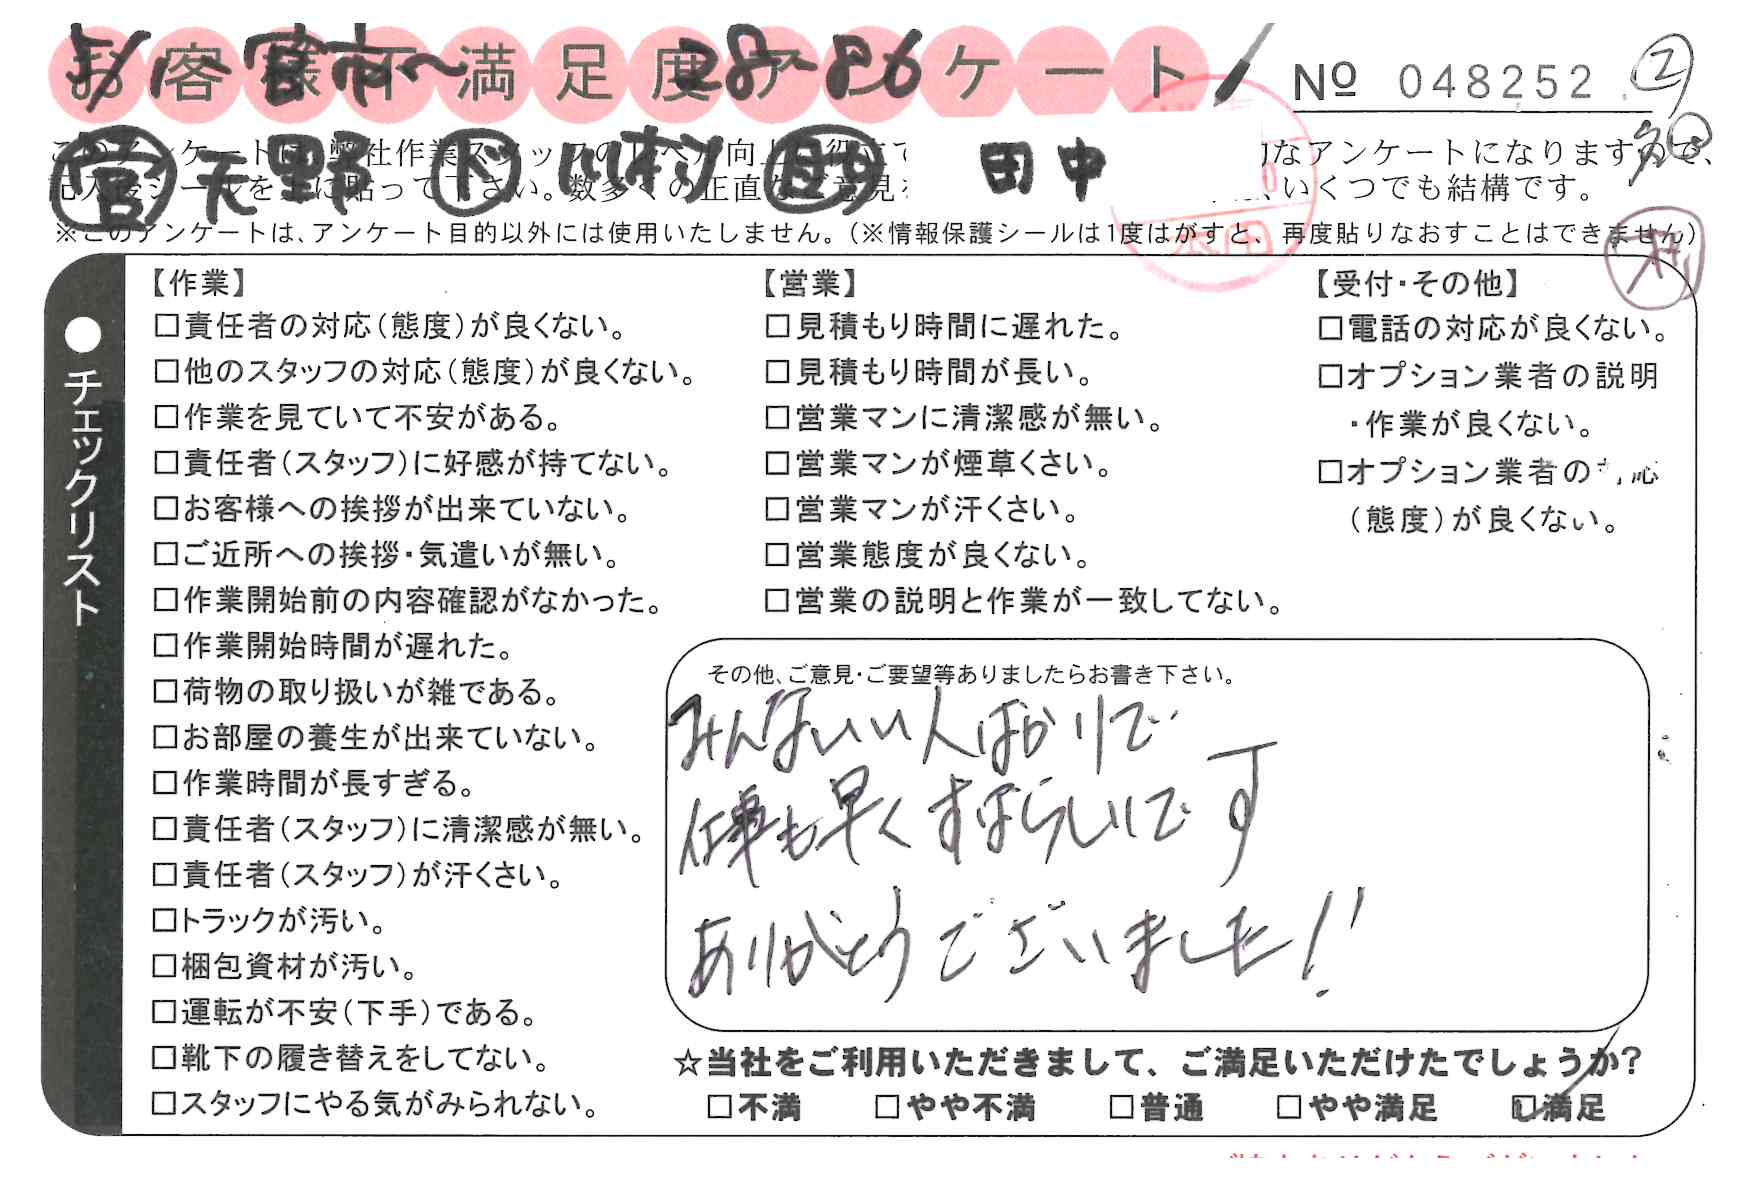 お客様不満足度アンケート
5/1 一宮市～ 28-86
No 048252 ②
営 天野 下 川村 明 田中
このアンケートは、弊社作業スタッフのレベル向上に役立て なアンケートになりますので、
記入後シールを上に貼って下さい。数多くの正直なご意見 いくつでも結構です。
※このアンケートは、アンケート目的以外には使用いたしません。（※情報保護シールは1度はがすと、再度貼りなおすことはできません）
チェックリスト
【作業】
□責任者の対応（態度）が良くない。
□他のスタッフの対応（態度）が良くない。
□作業を見ていて不安がある。
□責任者（スタッフ）に好感が持てない。
□お客様への挨拶が出来ていない。
□ご近所への挨拶・気遣いが無い。
□作業開始前の内容確認がなかった。
□作業開始時間が遅れた。
□荷物の取り扱いが雑である。
□お部屋の養生が出来ていない。
□作業時間が長すぎる。
□責任者（スタッフ）に清潔感が無い。
□責任者（スタッフ）が汗くさい。
□トラックが汚い。
□梱包資材が汚い。
□運転が不安（下手）である。
□靴下の履き替えをしてない。
□スタッフにやる気がみられない。
【営業】
□見積もり時間に遅れた。
□見積もり時間が長い。
□営業マンに清潔感が無い。
□営業マンが煙草くさい。
□営業マンが汗くさい。
□営業態度が良くない。
□営業の説明と作業が一致してない。
【受付・その他】
□電話の対応が良くない。
□オプション業者の説明
・作業が良くない。
□オプション業者の 応
（態度）が良くない。
その他、ご意見・ご要望等ありましたらお書き下さい。
みんないい人ばかりで
仕事も早くすばらしいです
ありがとうございました!!
☆当社をご利用いただきまして、ご満足いただけたでしょうか?
□不満 □やや不満 □普通 □やや満足 □満足